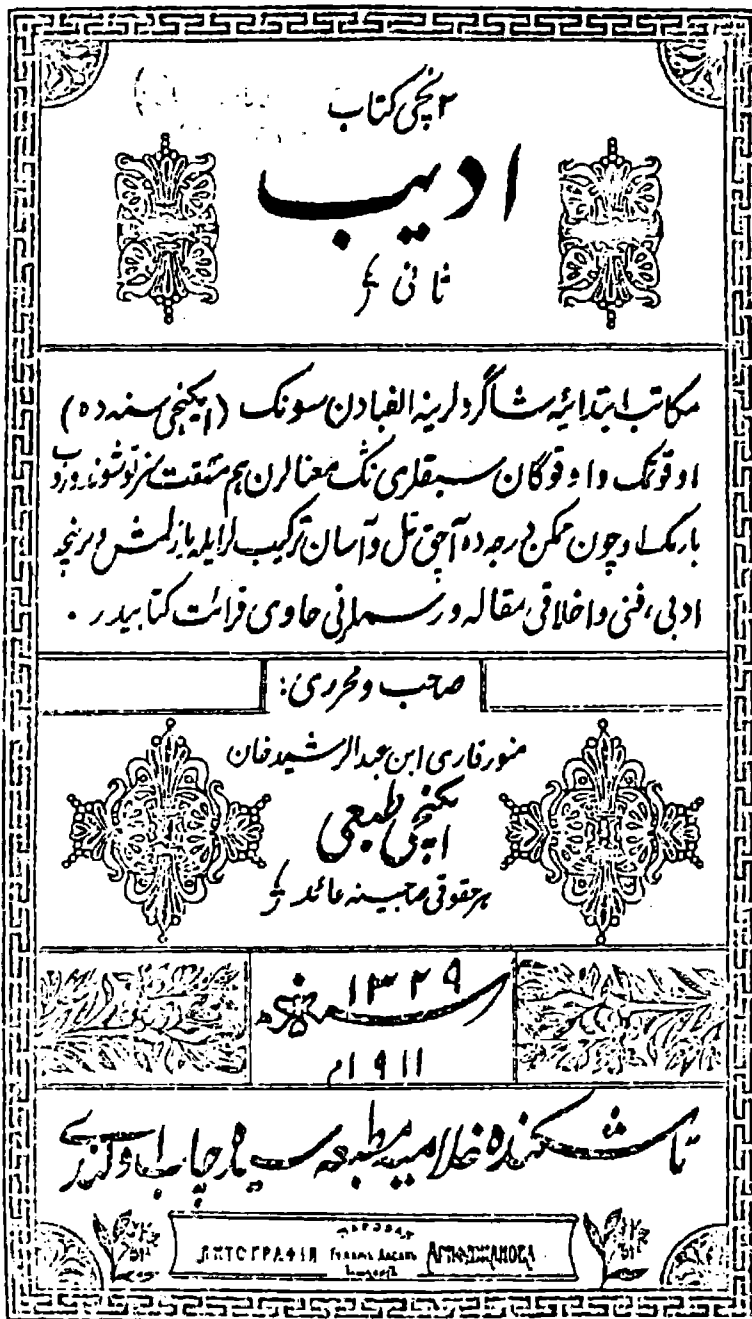 ۲ نچی کتاب
ادیب
ثانی
مکاتب ابتدائیه شاگردلرینه الفبادن سونک (ایکنچی سنه ده)
اوقوتمک و اوقوگان سبقلری ننگ معنالرن هم مشقت سز توشوندوروب
بارمک اوچون ممکن درجه ده آچق تل و آسان ترکیب لر ایله یازلمش و برنچه
ادبی، فنی و اخلاقی مقاله و رسملرنی حاوی قرائت کتابیدر .
صاحب و محرری:
منور قاری ابن عبدالرشید خان
ایکنچی طبعی
هر حقوقی صاحبینه عائد
۱۳۲۹ سنه هجری
۱۹۱۱م
تاشکنده غلامیه مطبعه سیده چاپ اولندی
ПАРОВАЯ
ЛИТОГРАФІЯ Гуламъ Хасанъ АРИФДЖАНОВА